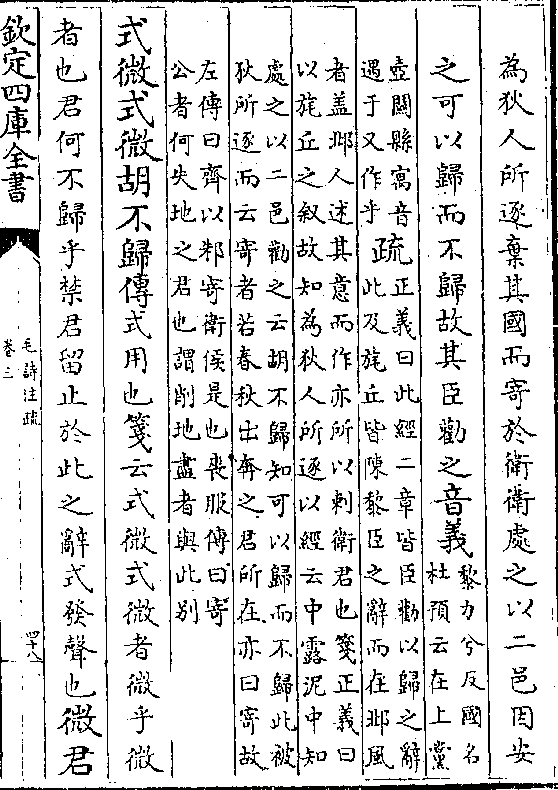 為狄人所逐棄其國而寄於衛衛處之以二邑因安
之可以歸而不歸故其臣勸之音義黎力兮反國名
杜預云在上黨
壺關縣寓音
遇于又作乎
疏正義曰此經二章皆臣勸以歸之辭
此及旄丘皆陳黎臣之辭而在邶風
者盖邶人述其意而作亦所以刺衛君也箋正義曰
以旄丘之叙故知為狄人所逐以經云中露泥中知
處之以二邑勸之云胡不歸知可以歸而不歸此被
狄所逐而云寄者若春秋出奔之君所在亦曰寄故
左傳曰齊以郲寄衛侯是也喪服傳曰寄
公者何失地之君也謂削地盡者與此別
式微式微胡不歸傳式用也箋云式微式微者微乎微
者也君何不歸乎禁君留止於此之辭式發聲也微君
欽定四庫全書
毛詩注疏
卷三
四十八